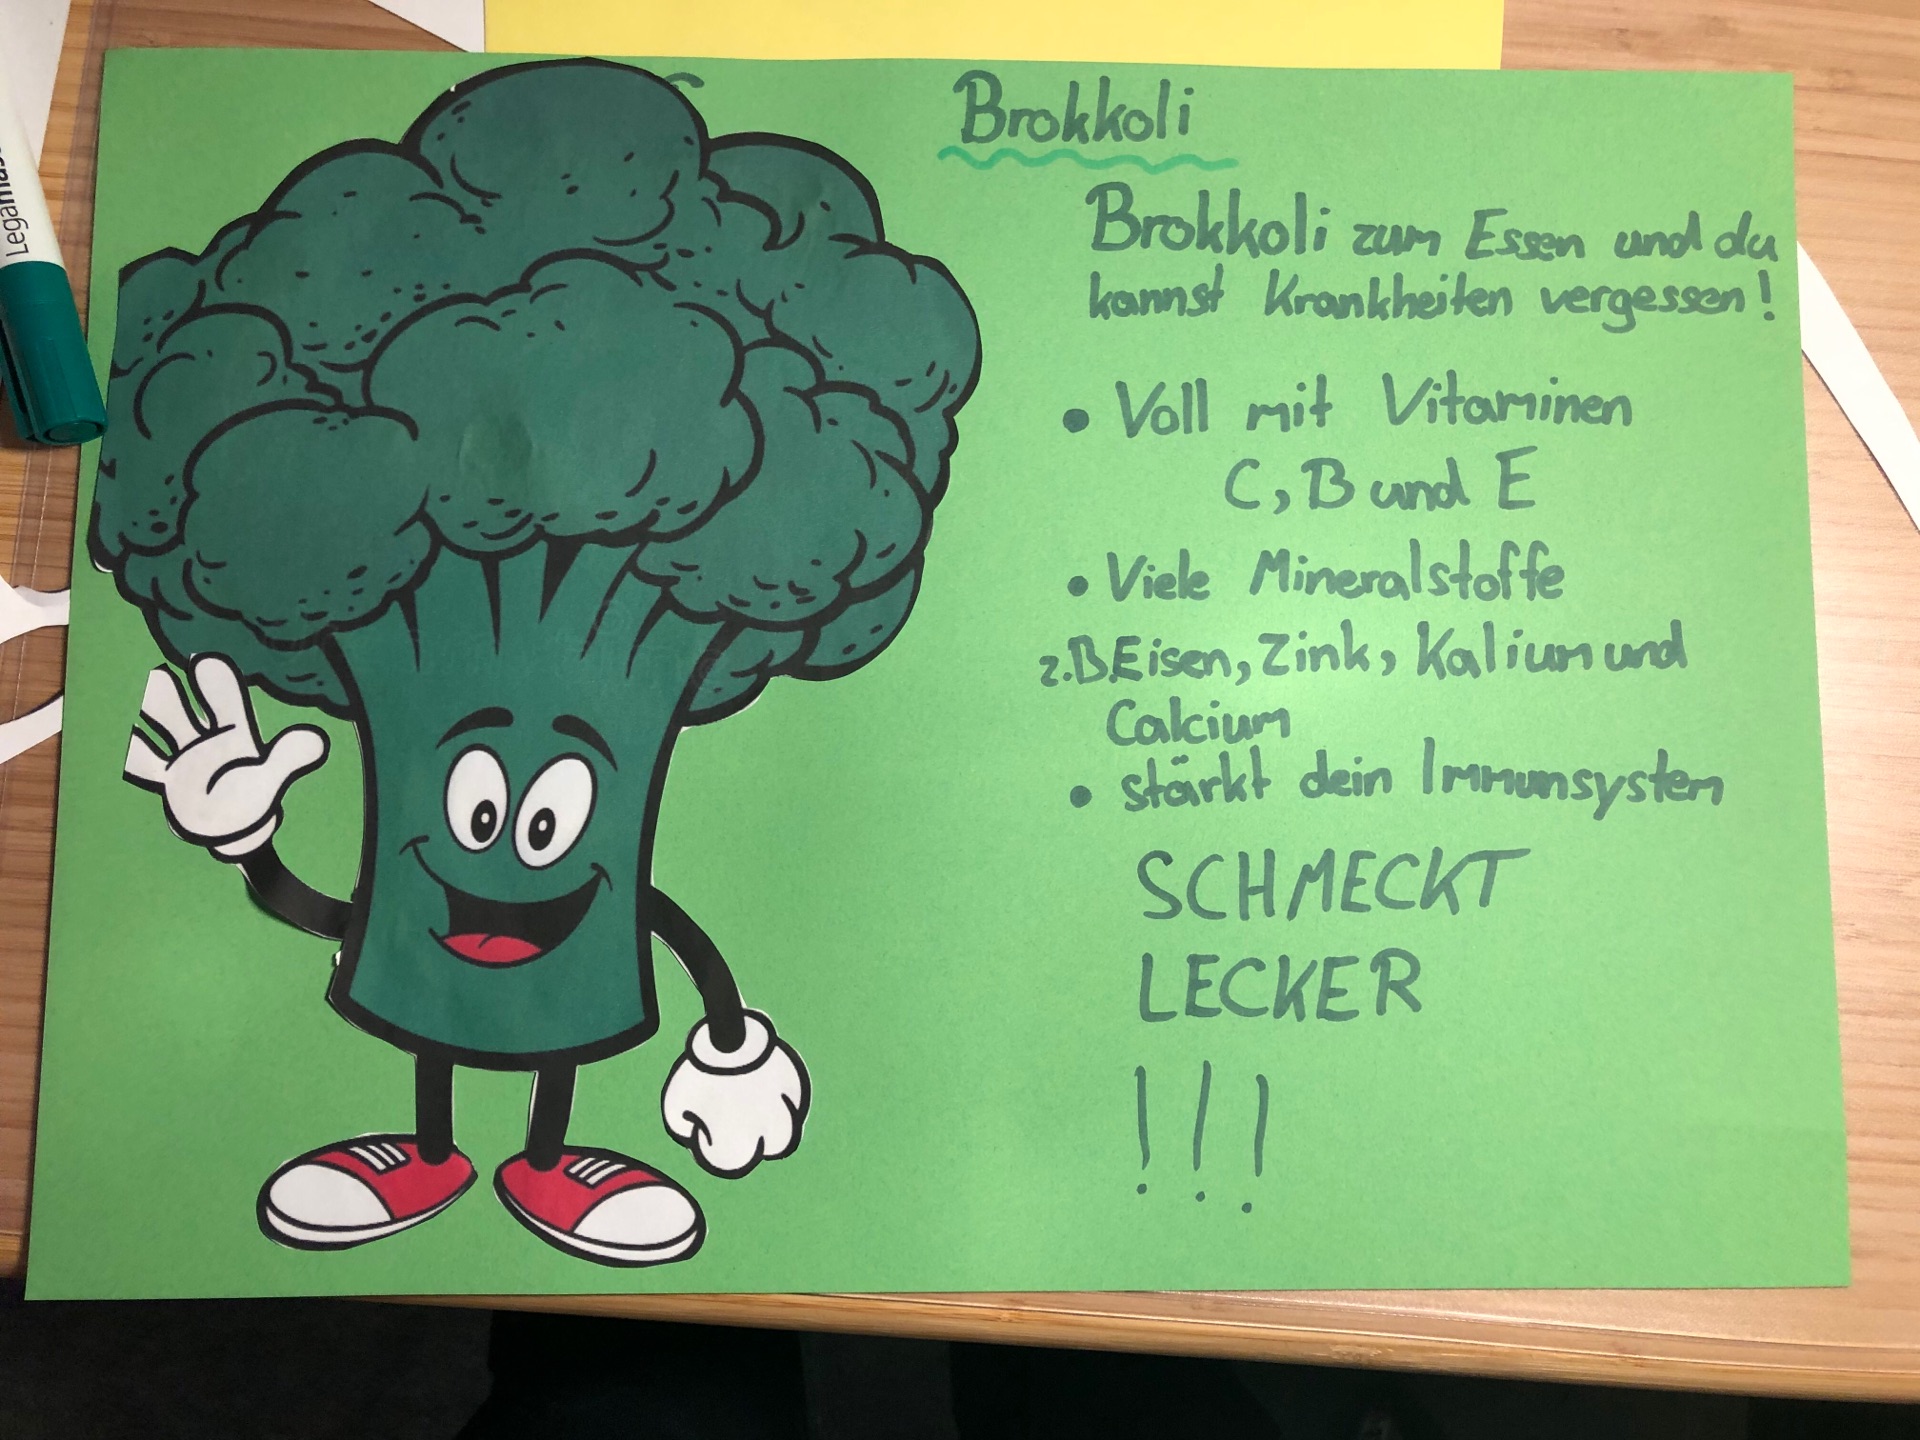 Brokkoli
Brokkoli zum Essen und du
kannst Krankheiten vergessen!
• Voll mit Vitaminen
C, B und E
• Viele Mineralstoffe
z.B. Eisen, Zink, Kalium und
Calcium
• stärkt dein Immunsystem
SCHMECKT
LECKER
!!!